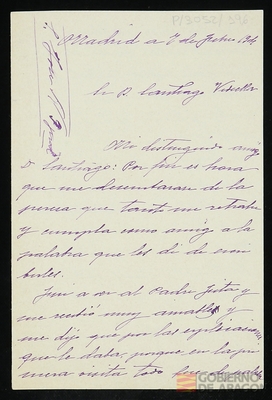 Madrid a 7 de Febro 1914
Sr D. Santiago Vidiella
Mi distinguido amigo
D. Santiago: Por fin es hora
que me desembarase de la
peresa que tanto me retrata
y cumpla como amigo a la
palabra que les di de escri
birles.
Fui a ver al Padre Fita y
me recibió muy amable y
me dijo que por las esplicaciones
que le daba, porque en la pri
mera visita todo fue
GOBIERNO
DE ARAGON